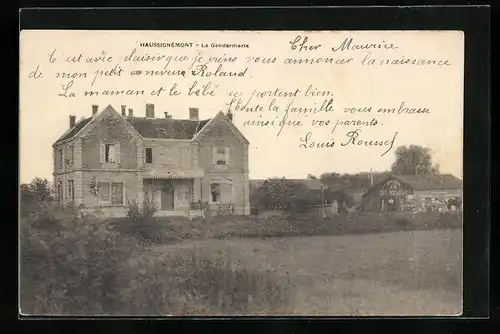 HAUSSIGNÉMONT - La Gendarmerie
Cher Maurice.
C'est avec plaisir que je viens vous annoncer la naissance
de mon petit neveu Roland.
La maman et le bébé se portent bien.
Toute la famille vous embrasse
ainsi que vos parents.
Louis Roussel